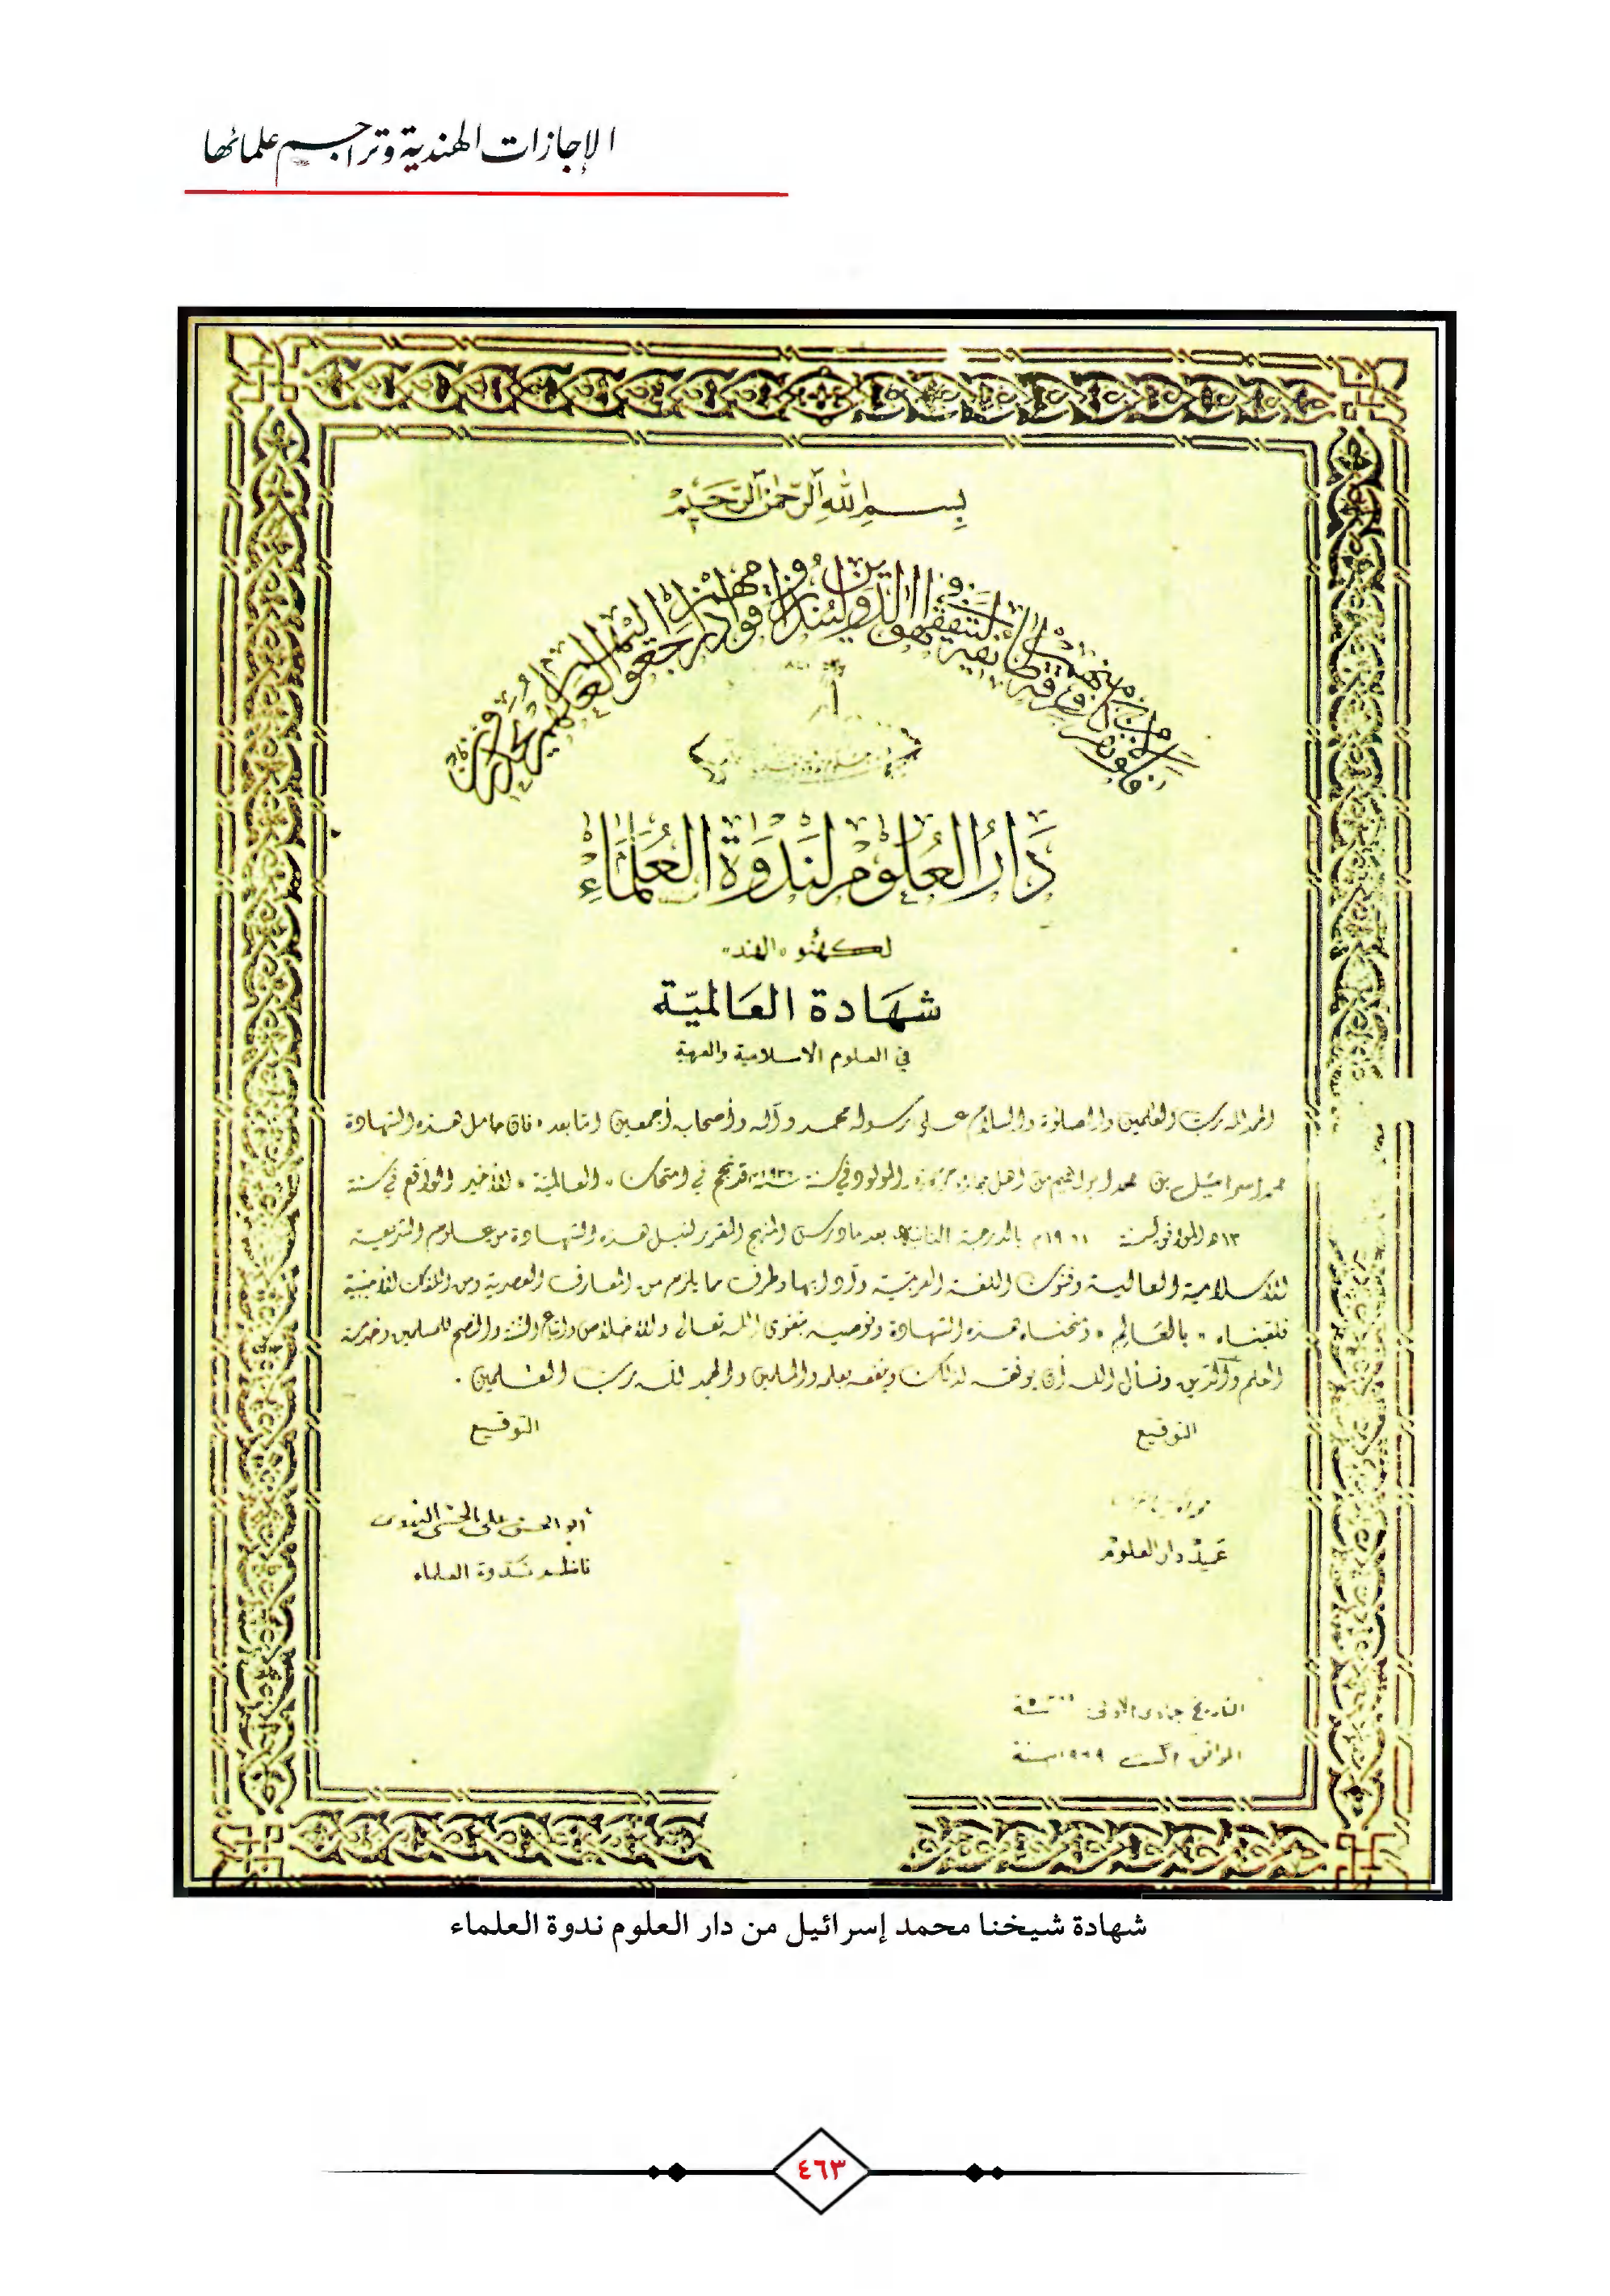 الإجازات الهندية وتراجم علمائها
بِسْمِ اللهِ الرَّحْمٰنِ الرَّحِيْمِ
فلولا نفر من كل فرقة منهم طائفة ليتفقهوا في الدين ولينذروا قومهم إذا رجعوا إليهم لعلهم يحذرون
دَارُ العُلُوْمِ لنَدْوَةِ العُلَمَاءِ
لكهنؤ «الهند»
شَهَادة العَالميّة
في العلوم الاسلامية والعربية
الحمد لله رب العٰلمين والصلوٰة والسلام على رسوله محمد وآله وأصحابه أجمعين امّا بعد، فان حامل هذه الشهادة
محمد اسرائيل بن محمد ابراهيم من اهل المولود في سنة قد نجح في امتحان «العالمية» الأخير الواقع في سنة
١٣ه الموافق لسنة ١٩م بالدرجة الثانية بعد ما درس المنهج المقرر لنيل هذه الشهادة من علوم الشريعة
الإسلامية العالية وفنون اللغة العربيّة وآدابها وطرف مما يلزم من المعارف العصرية ومن اللغات الأجنبية
فلقبناه «بالعَالِم» ومنحناه هذه الشهادة ونوصيه بتقوى الله تعالى والأخلاص واتباع السنة والنصح للمسلمين وخدمة
العلم والدّين ونسأل الله أن يوفقه لذلك وينفعه بعلمه والمسلمين والحمد لله رب العٰلمين.
التوقيع
التوقيع
أبو الحسن علي الحسني الندوي
عميد دار العلوم
ناظم ندوة العلماء
التاريخ جمادى الأولى سنة
الموافق اگست ١٩٦٩ سنة
شهادة شيخنا محمد إسرائيل من دار العلوم ندوة العلماء
٤٦٣